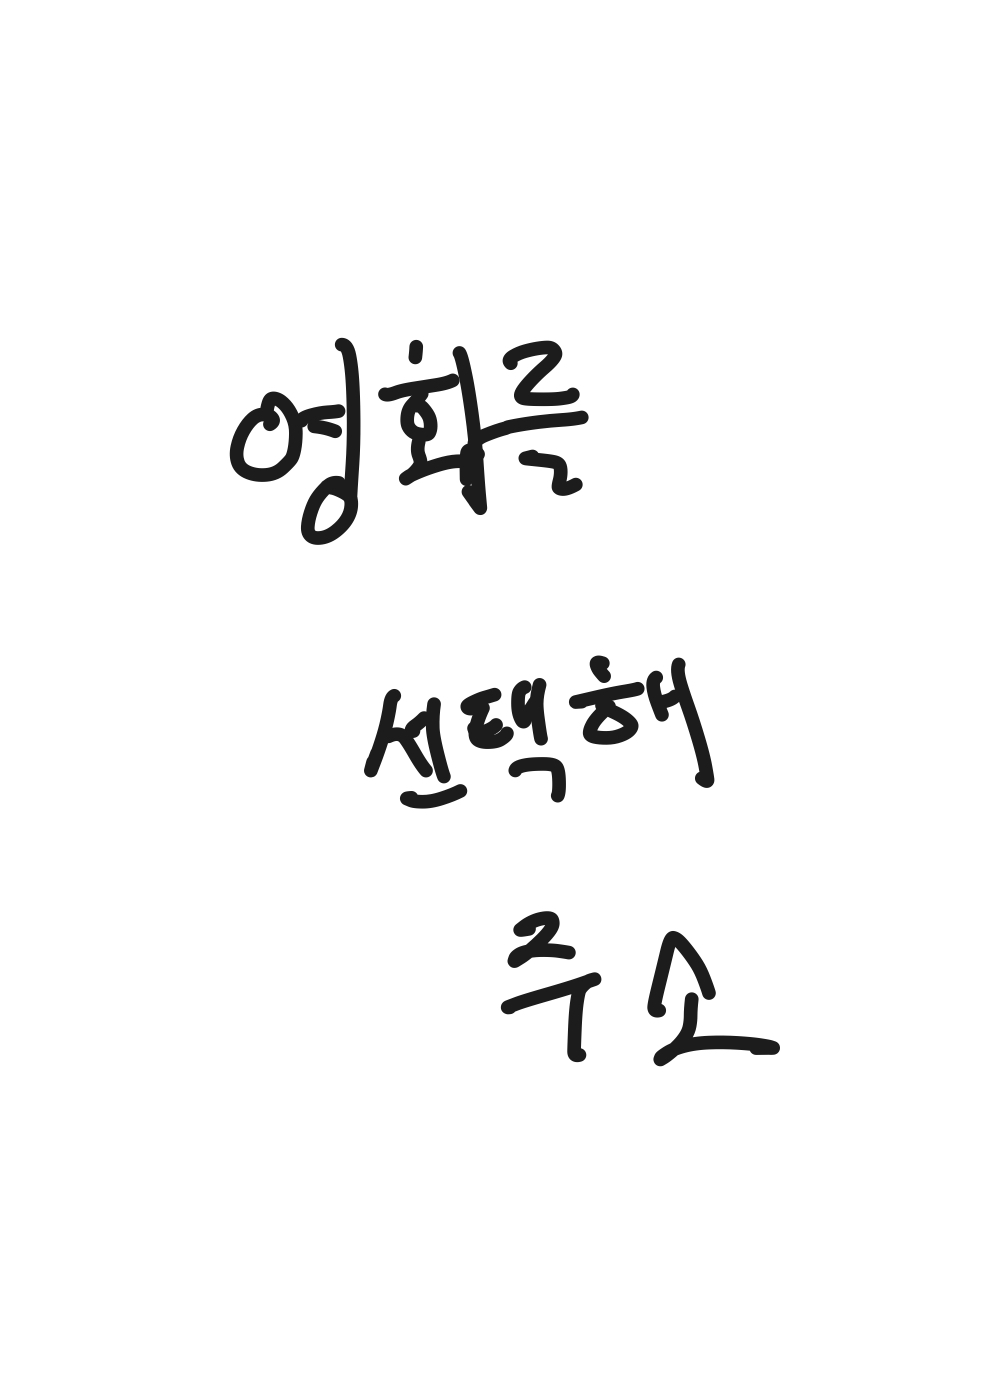 영화를
선택해
주소